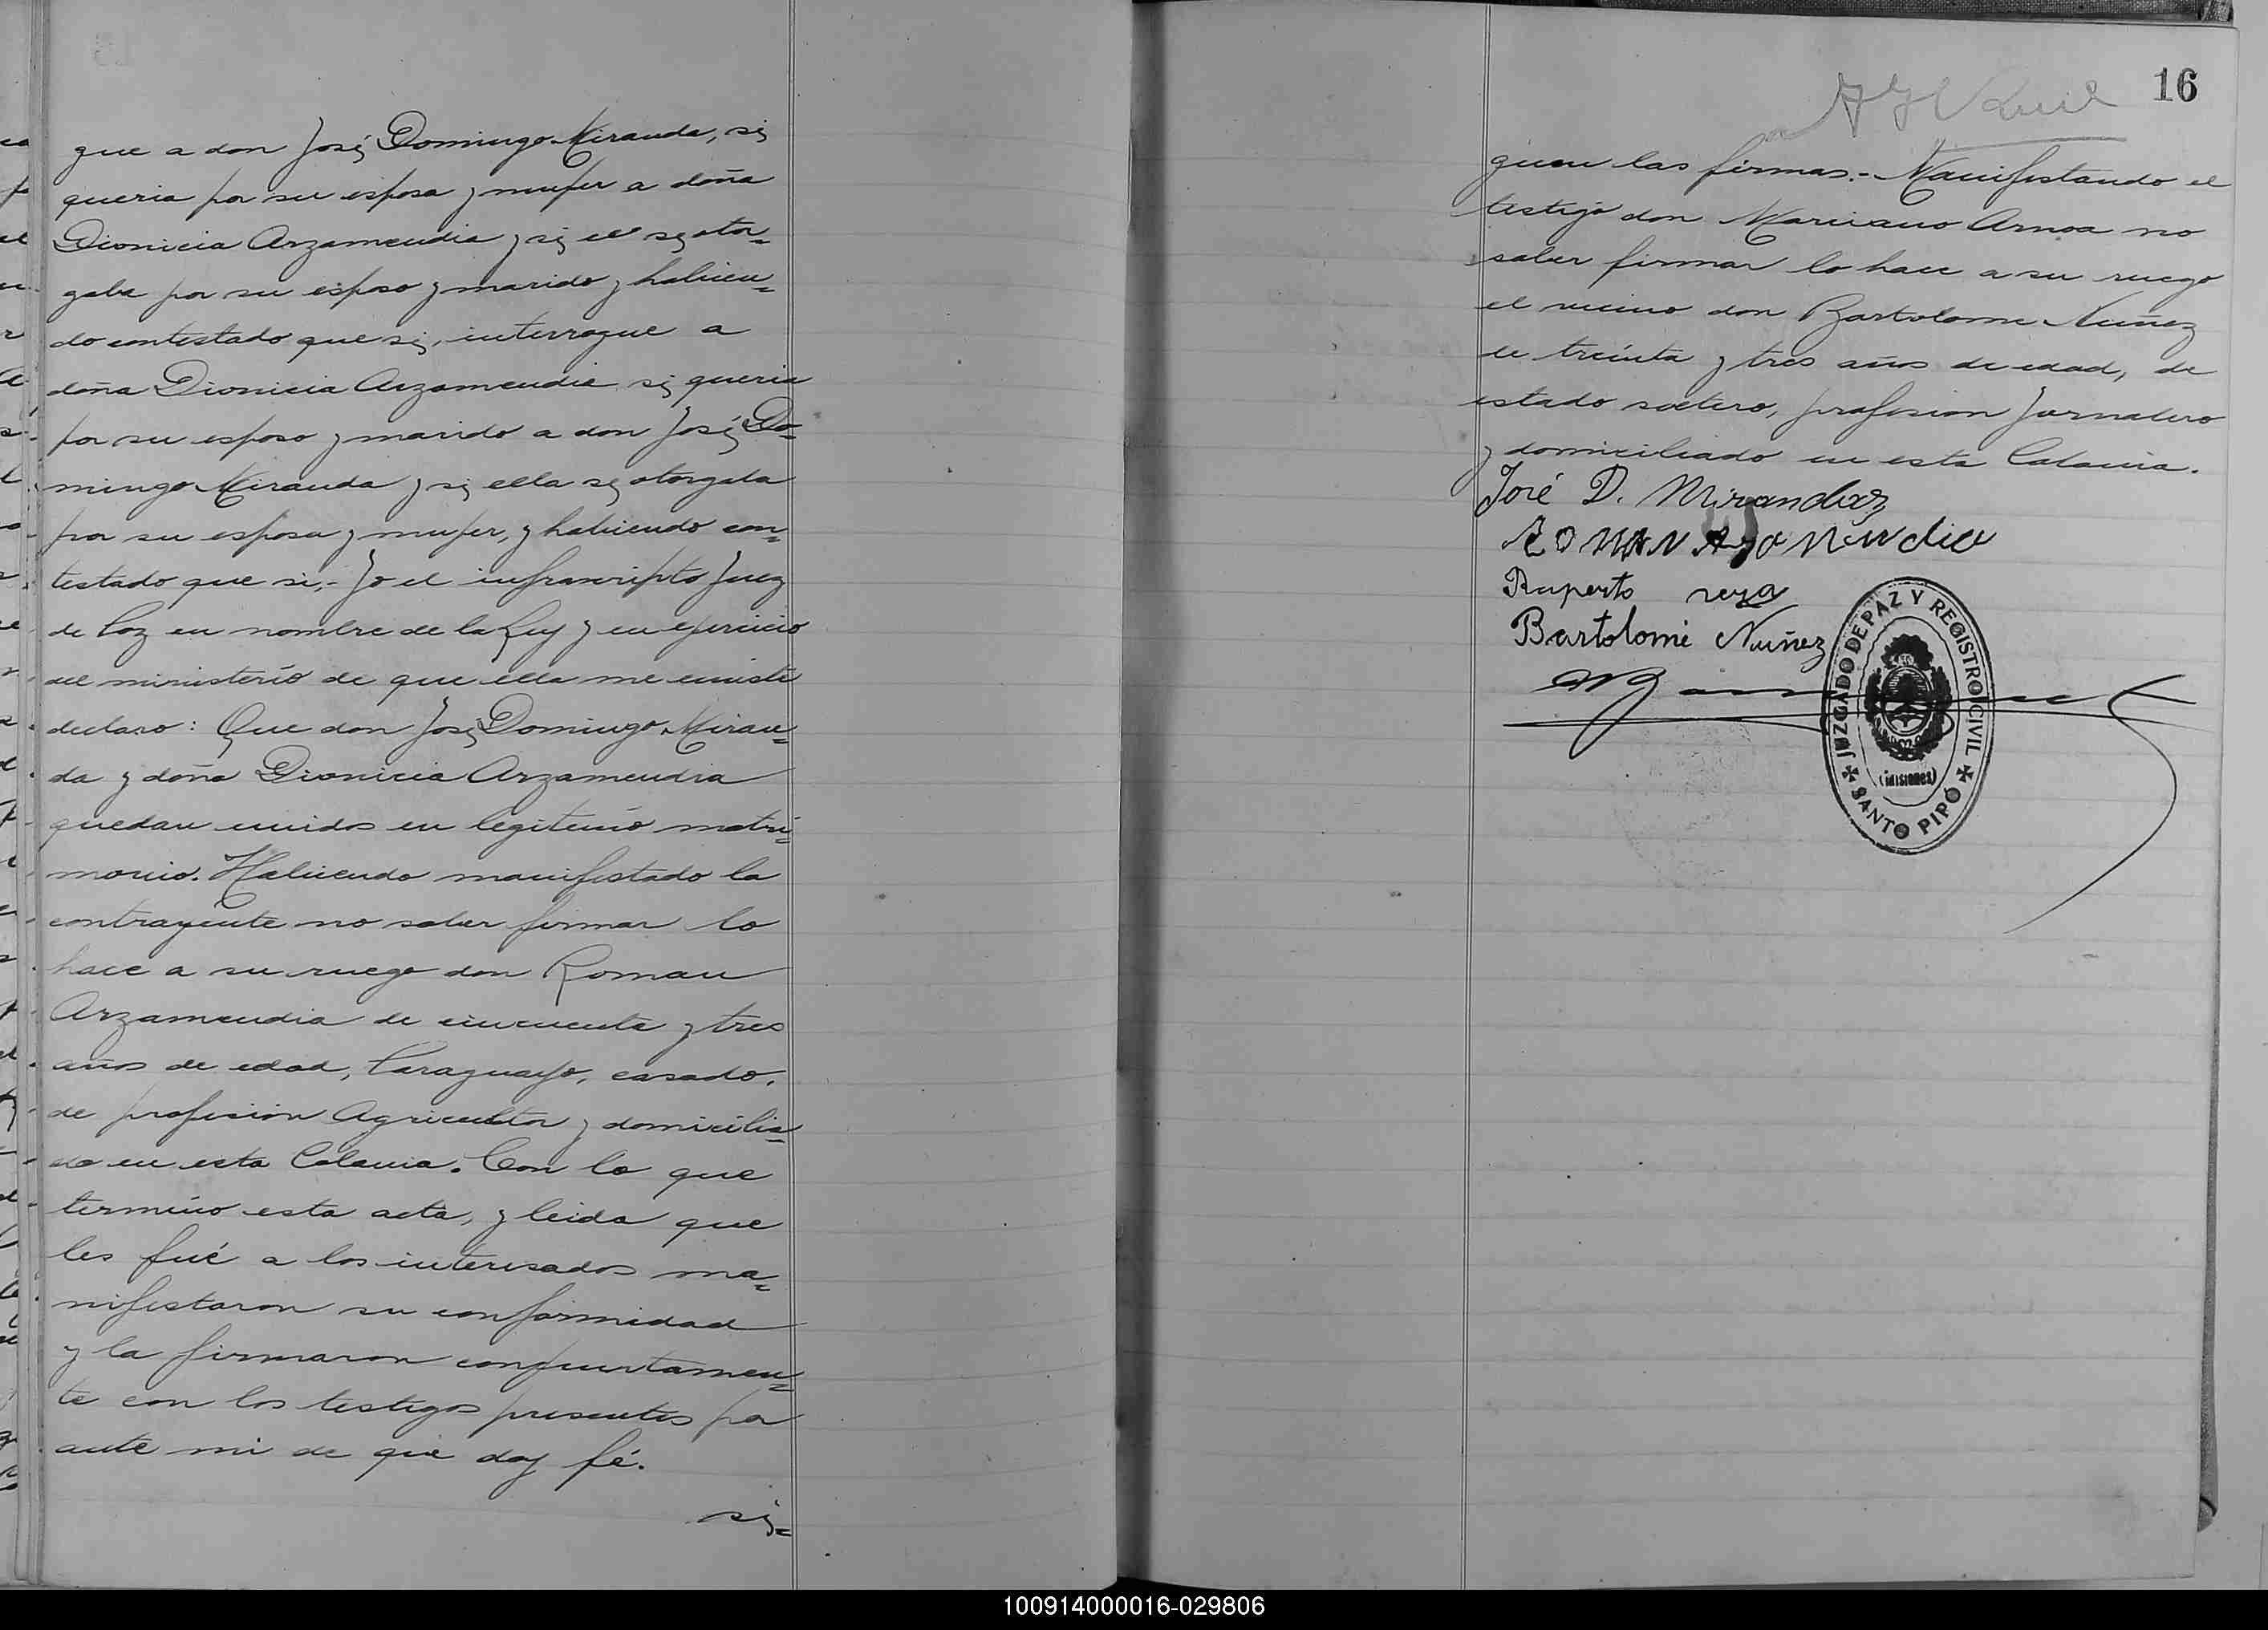 que a don José Domingo Miranda, si
queria por su esposa y mujer a doña
Dionicia Arzamendia y si el se otor=
gaba por su esposo y marido y habien=
do contestado que si, interrogue a
doña Dionicia Arzamendia si queria
por su esposo y marido a don José Do=
mingo Miranda y si ella se otorgaba
por su esposa y mujer, y habiendo con=
testado que si,- Yo el infrascripto Juez
de Paz en nombre de la Ley y en ejercicio
del ministerio de que ella me enviste
declaro: Que don José Domingo Miran=
da y doña Dionicia Arzamendia
quedan unidos en legitimo matri=
monio. Habiendo manifestado la
contrayente no saber firmar lo
hace a su ruego don Roman
Arzamendia de cincuenta y tres
años de edad, Paraguayo, casado,
de profesion Agricultor y domicilia=
do en esta Colonia. Con lo que
termino esta acta, y leida que
les fué a los interesados ma=
nifestaron su conformidad
y la firmaron conjuntamen=
te con los testigos presentes por
ante mi de que doy fé.
si=
16
guen las firmas.- Manifestando el
testigo don Marciano Arnoa no
saber firmar lo hace a su ruego
el vecino don Bartolome Nuñez
de treinta y tres años de edad, de
estado soltero, profesion Jornalero
y domiciliado en esta Colonia.
José D. Miranda
ROMAN
Ruperto
Bartolomé Nuñez
JUZGADO DE PAZ Y REGISTRO CIVIL
(Misiones)
SANTO PIPÓ
100914000016-029806